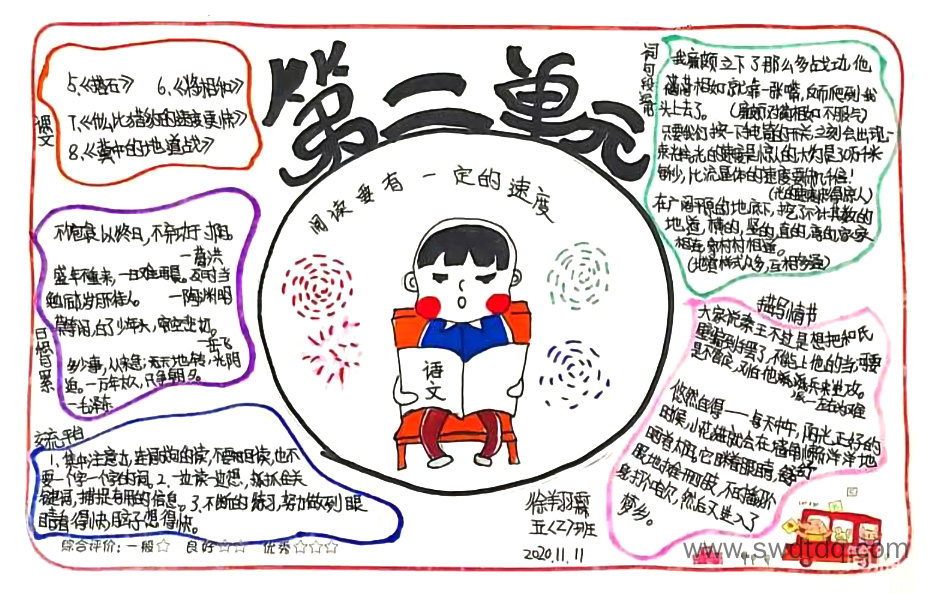 第二单元
课文
5、《搭石》 6、《将相和》
7、《什么比猎豹的速度更快》
8、《冀中的地道战》
不饱食以终日,不弃功于寸阴。
—葛洪
盛年不重来,一日难再晨。及时当
勉励,岁月不待人。 —陶渊明
莫等闲,白了少年头,空悲切。
—岳飞
多少事,从来急;天地转,光阴
迫。一万年太久,只争朝夕。
—毛泽东
日积月累
交流平台
1、集中注意力,连词成句地读,不要回读,也不
要一个字一个字的读。2、一边读一边想,抓住关
键词,捕捉有用的信息。3、不断的练习,努力做到眼
睛看得快,脑子想得快。
综合评价:一般☆ 良好☆☆ 优秀☆☆☆
阅读要有一定的速度
语文
五〈2〉班
2020.11.11
词句段运用
我廉颇立下了那么多战功,他
蔺相如就靠一张嘴,反而爬到我
头上去了。(廉颇对蔺相如不服气)
只要我们按一下电筒的开关,立刻会出现一
(光的速度快得惊人)
在广阔平原的地底下,挖了不计其数的
地道,横的,竖的,直的,弯的,家家
相连,村村相通。
(地道样式众多,互相贯通)
描写情节
大家说秦王不过是想把和氏
璧骗到手罢了,不能上他的当,可要
是不答应,又怕他派兵来进攻。
—左右为难
悠然自得——每天中午,阳光正好的
时候,小花猫就会在墙角懒洋洋地
晒着太阳,它眯着眼睛,舒舒
服地
身打个哈欠,然后又进入了
梦乡。
www.swdtdq.com